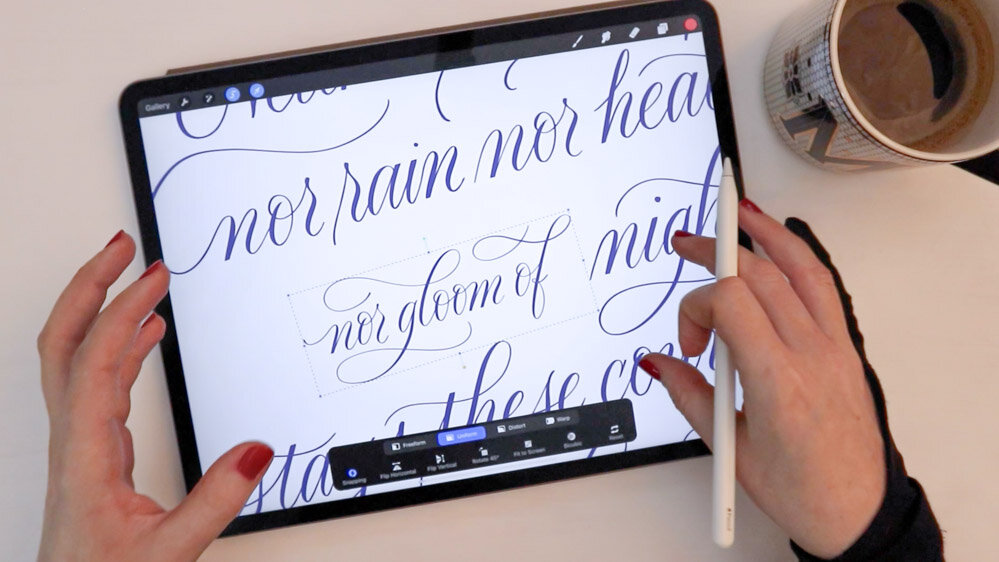 Gallery
nor rain nor hea
nor gloom of nigh
stays these co
Freeform Uniform Distort Warp
Snapping Flip Horizontal Flip Vertical Rotate 45° Fit to Screen Bicubic Reset